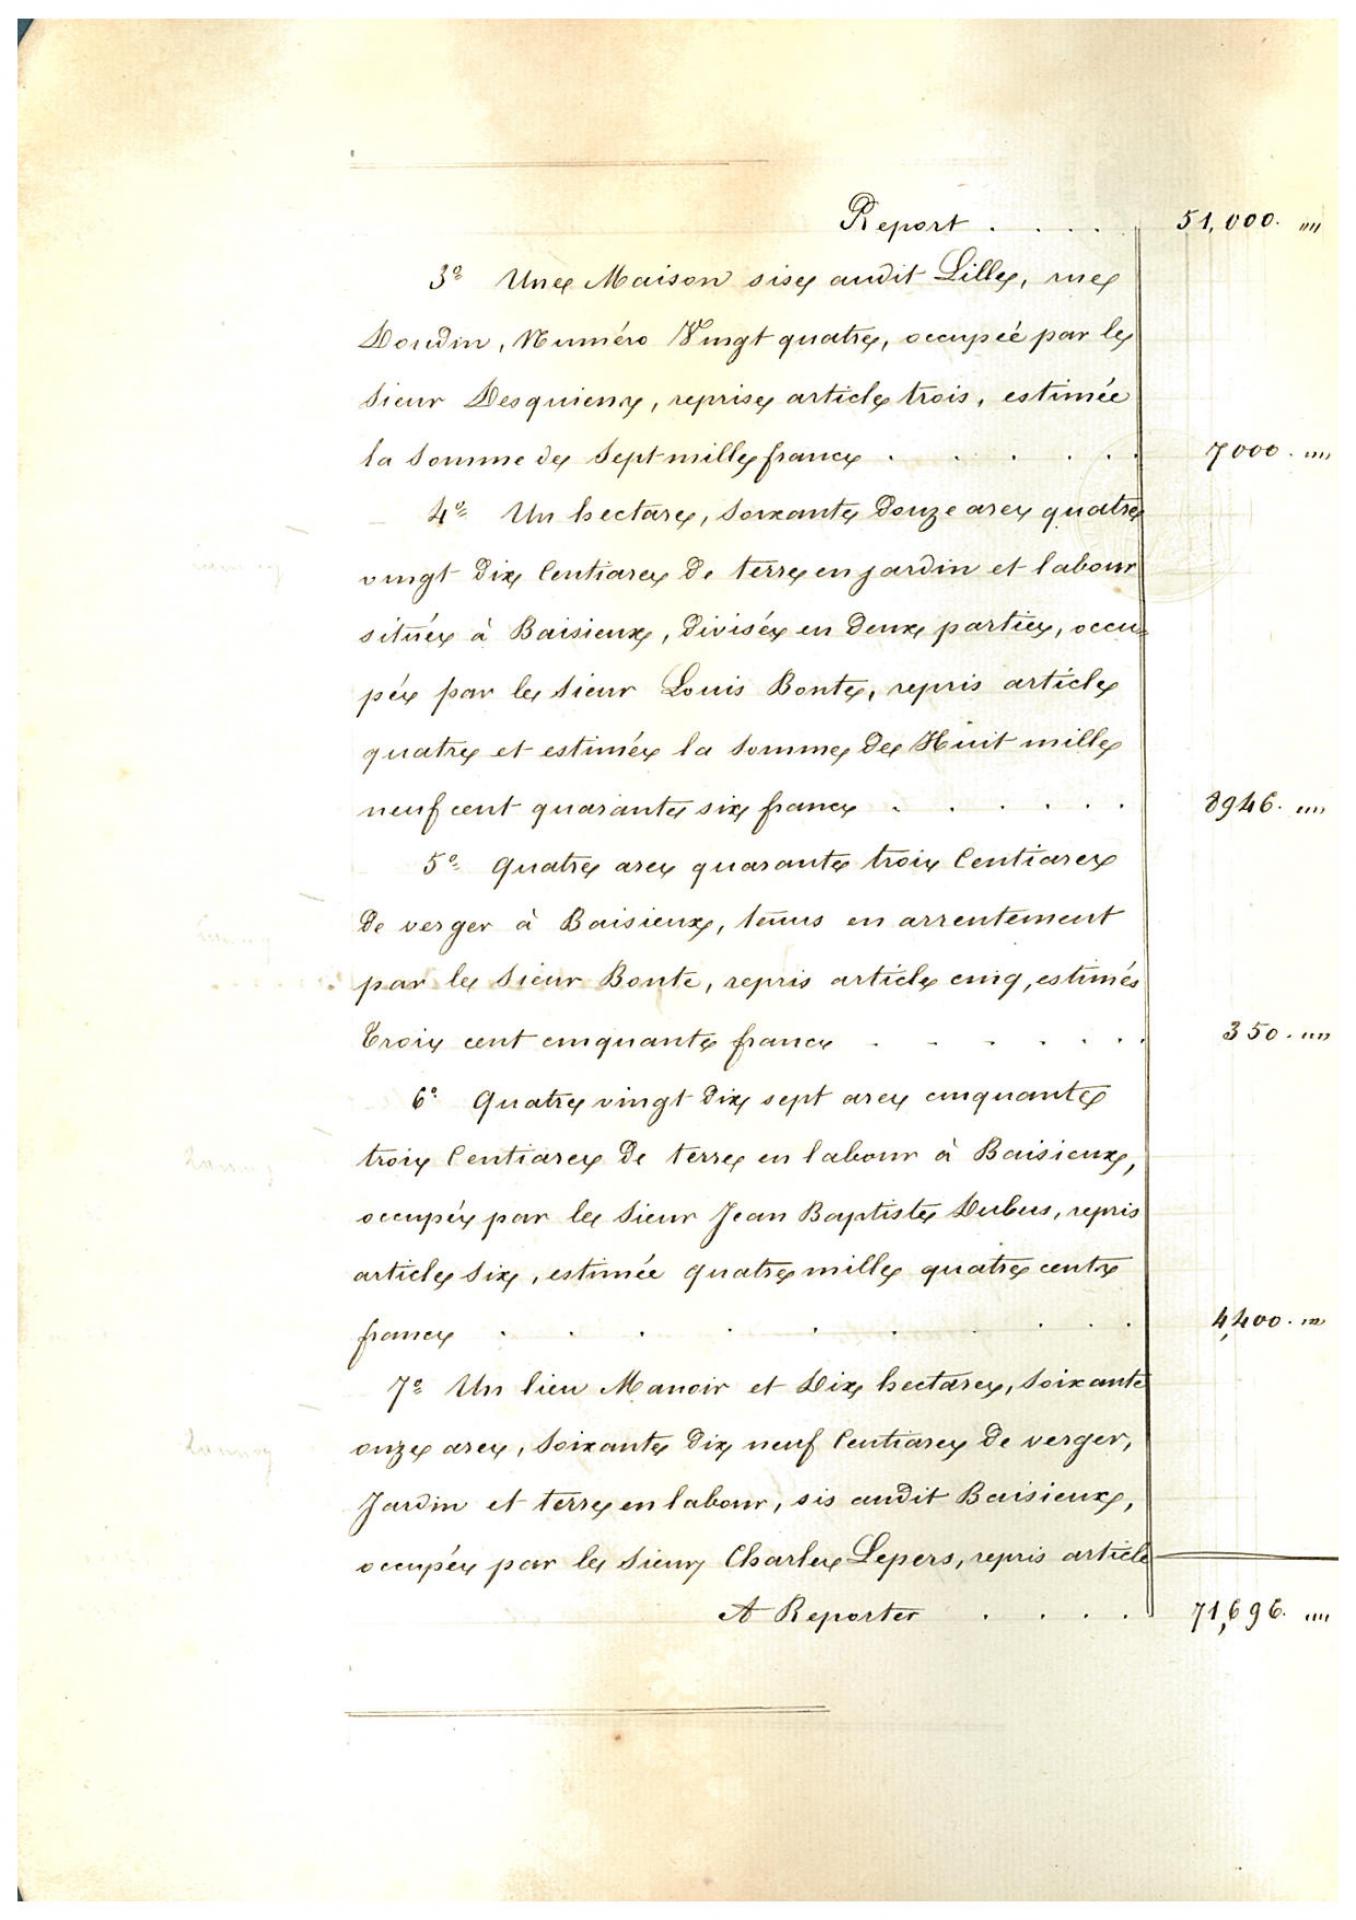 Report . . . . 51,000. ""
3º Une Maison sise audit Lille, rue
Doudin, Numéro Vingt quatre, occupée par le
Sieur Desquiens, reprise article trois, estimée
la Somme de Sept mille francs . . . . . 7000. ""
4º Un hectare, Soixante Douze ares quatre
vingt Dix Centiares De terre en jardin et labour
située à Baisieux, Divisée en Deux parties, occu=
pée par le Sieur Louis Bonte, repris article
quatre et estimée la Somme De Huit mille
neuf cent quarante six francs . . . . . 8946. ""
5º Quatre ares quarante trois Centiares
De verger à Baisieux, tenus en arrentement
par le Sieur Bonte, repris article cinq, estimés
Trois cent cinquante francs . . . . . . 350. ""
6º Quatre vingt Dix sept ares cinquante
trois Centiares De terre en labour à Baisieux,
occupée par le Sieur Jean Baptiste Dubus, repris
article Six, estimée quatre mille quatre cents
francs . . . . . . . . . 4,400. ""
7º Un lieu Manoir et Dix hectares, Soixante
onze ares, Soixante Dix neuf Centiares De verger,
Jardin et terre en labour, sis audit Baisieux,
occupés par le Sieur Charles Lepers, repris article
A Reporter . . . . 71,696. ""
Lannoy
Lannoy
Lannoy